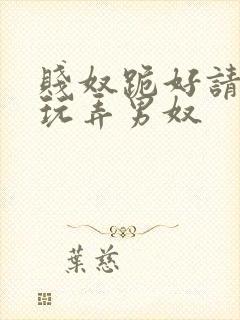 賤奴跪好請
玩弄男奴
葉慈